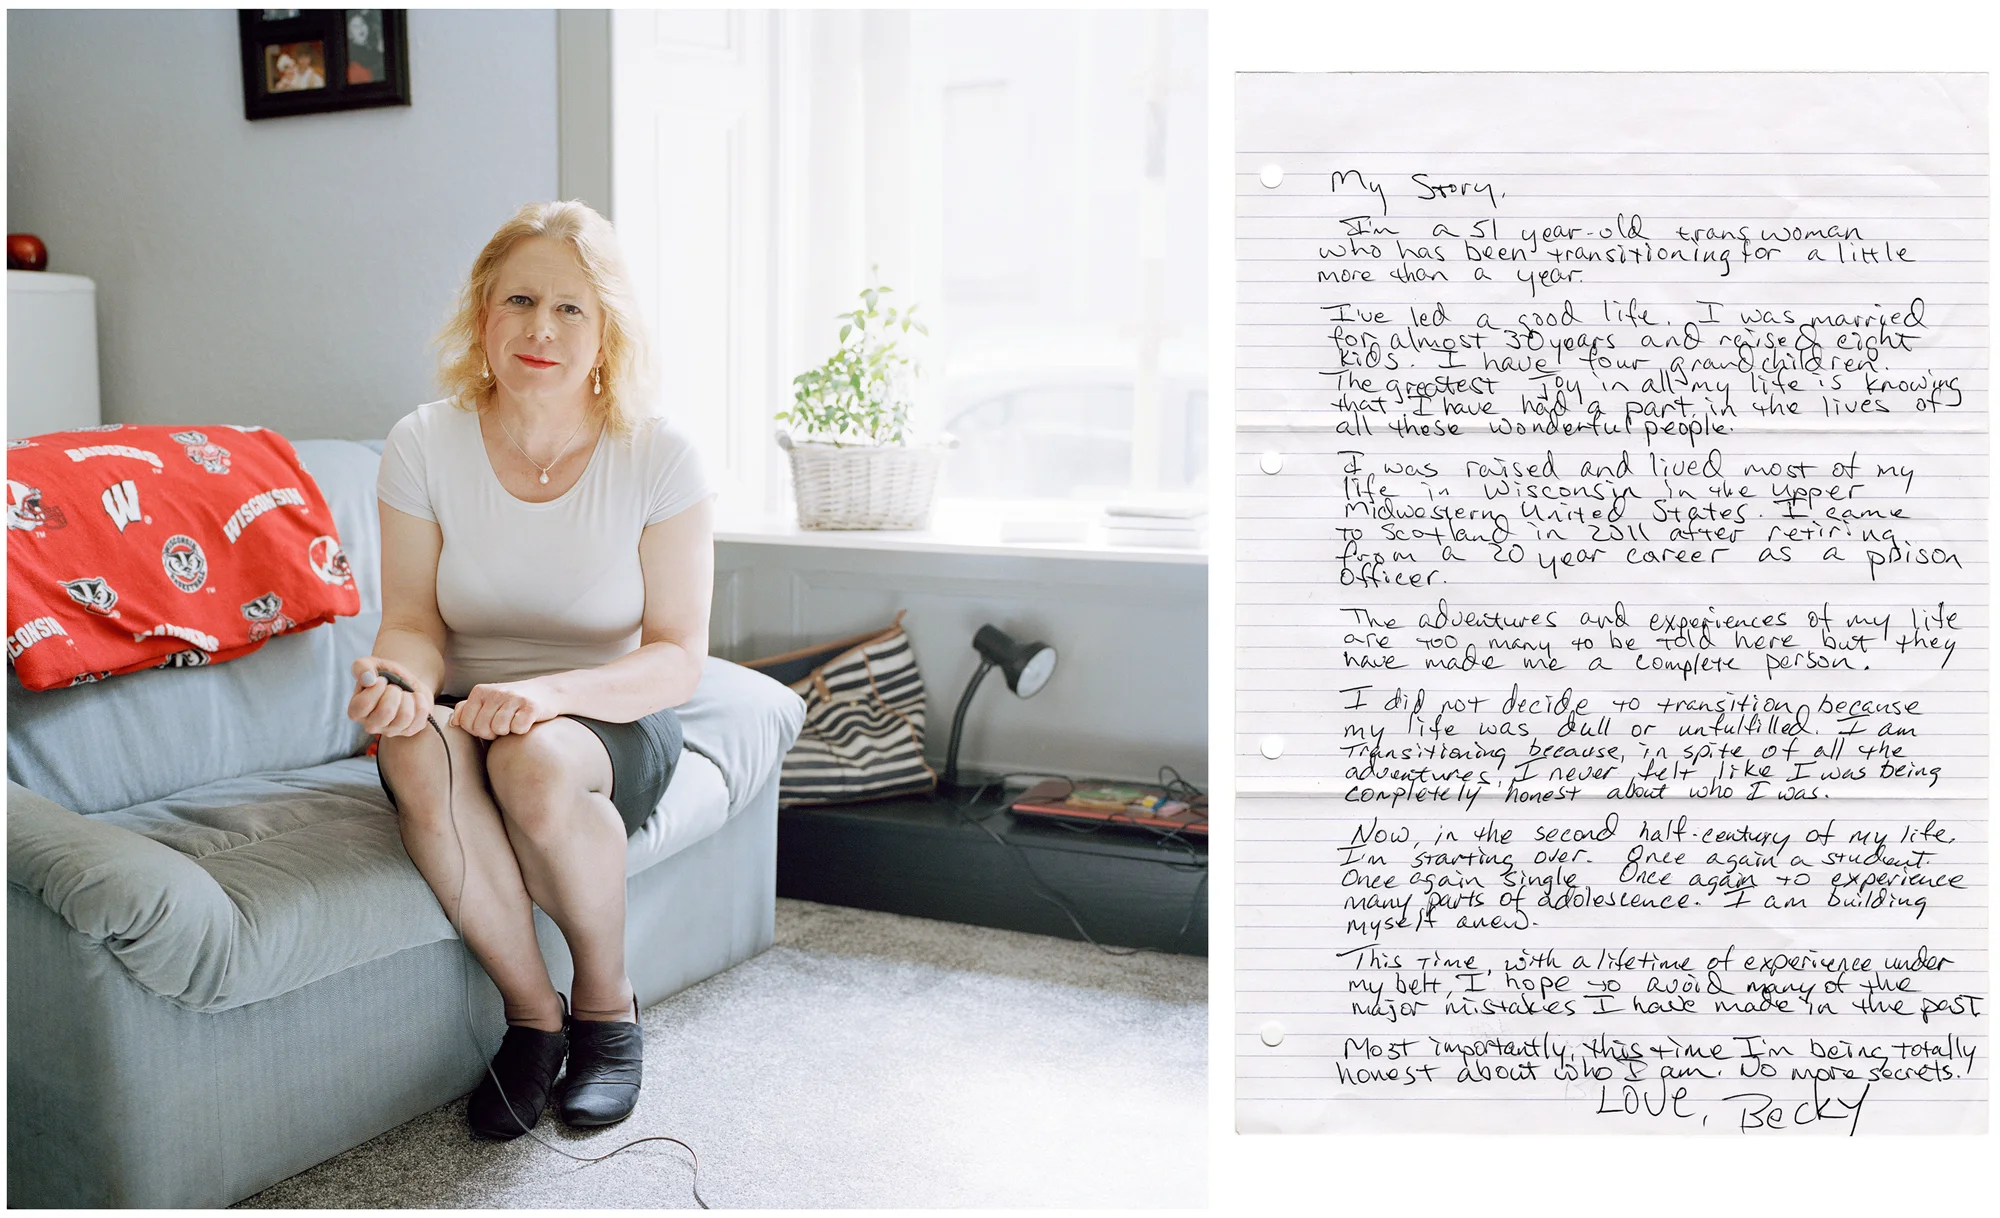 BADGERS
TM
W
®
WISCONSIN
TM
WISCONSIN
TM
CONSIN
BADGERS
TM
My Story.
I'm a 51 year-old trans woman
who has been transitioning for a little
more than a year.
I've led a good life. I was married
for almost 30 years and raised eight
kids. I have four grandchildren.
The greatest Joy in all my life is knowing
that I have had a part in the lives of
all these wonderful people.
I was raised and lived most of my
life in Wisconsin in the Upper
Midwestern United States. I came
to Scotland in 2011 after retiring
from a 20 year career as a prison
officer.
The adventures and experiences of my life
are too many to be told here but they
have made me a complete person.
I did not decide to transition because
my life was dull or unfulfilled. I am
Transitioning because, in spite of all the
adventures, I never felt like I was being
completely honest about who I was.
Now, in the second half-century of my life,
I'm starting over. Once again a student.
Once again single. Once again to experience
many parts of adolescence. I am building
myself anew.
This Time, with a lifetime of experience under
my belt, I hope to avoid many of the
major mistakes I have made in the past
Most importantly, this time I'm being totally
honest about who I am. No more secrets.
Love, Becky